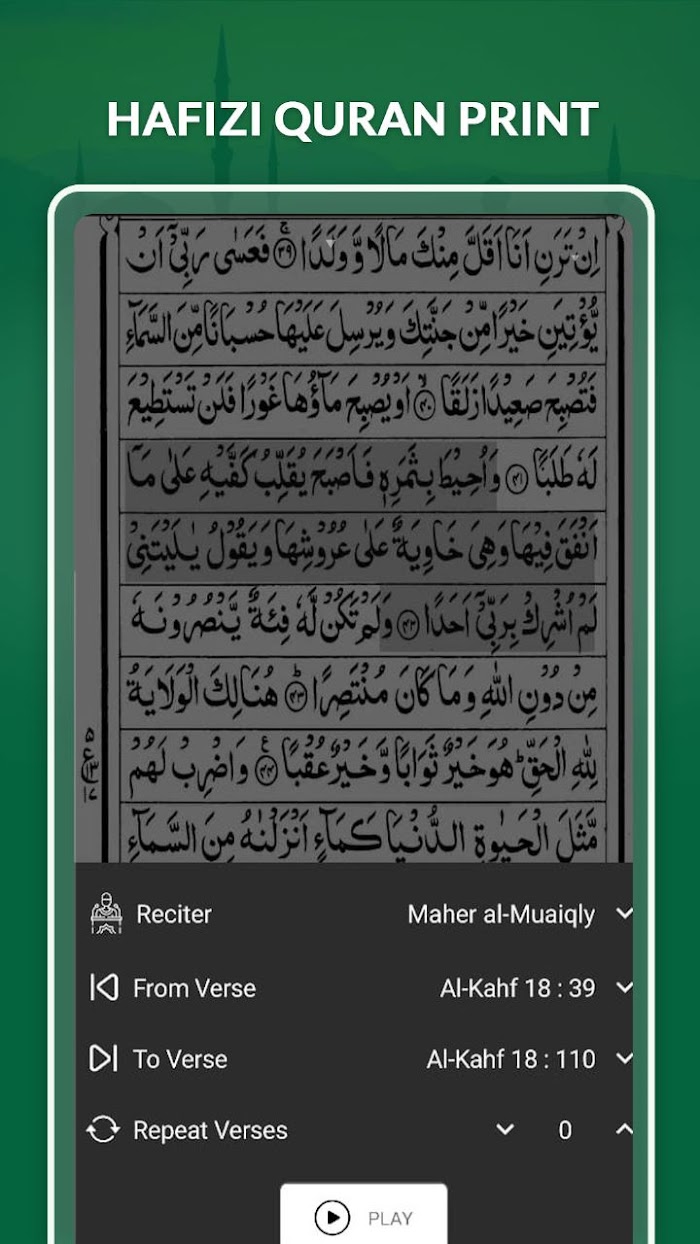 HAFIZI QURAN PRINT
اِنْ تَرَنِ اَنَا اَقَلَّ مِنْكَ مَالًا وَّ وَلَدًا ۚ﴿۳۹﴾ فَعَسٰى رَبِّیْۤ اَنْ
یُّؤْتِیَنِ خَیْرًا مِّنْ جَنَّتِكَ وَ یُرْسِلَ عَلَیْهَا حُسْبَانًا مِّنَ السَّمَآءِ
فَتُصْبِحَ صَعِیْدًا زَلَقًا ۙ﴿۴۰﴾ اَوْ یُصْبِحَ مَآؤُهَا غَوْرًا فَلَنْ تَسْتَطِیْعَ
لَهٗ طَلَبًا ﴿۴۱﴾ وَ اُحِیْطَ بِثَمَرِهٖ فَاَصْبَحَ یُقَلِّبُ كَفَّیْهِ عَلٰى مَاۤ
اَنْفَقَ فِیْهَا وَ هِیَ خَاوِیَةٌ عَلٰى عُرُوْشِهَا وَ یَقُوْلُ یٰلَیْتَنِیْ
لَمْ اُشْرِكْ بِرَبِّیْۤ اَحَدًا ﴿۴۲﴾ وَ لَمْ تَكُنْ لَّهٗ فِئَةٌ یَّنْصُرُوْنَهٗ
مِنْ دُوْنِ اللّٰهِ وَ مَا كَانَ مُنْتَصِرًا ؕ﴿۴۳﴾ هُنَالِكَ الْوَلَایَةُ
لِلّٰهِ الْحَقِّ ؕ هُوَ خَیْرٌ ثَوَابًا وَّ خَیْرٌ عُقْبًا ۧ﴿۴۴﴾ وَ اضْرِبْ لَهُمْ
مَّثَلَ الْحَیٰوةِ الدُّنْیَا كَمَآءٍ اَنْزَلْنٰهُ مِنَ السَّمَآءِ
Reciter Maher al-Muaiqly
From Verse Al-Kahf 18 : 39
To Verse Al-Kahf 18 : 110
Repeat Verses 0
PLAY